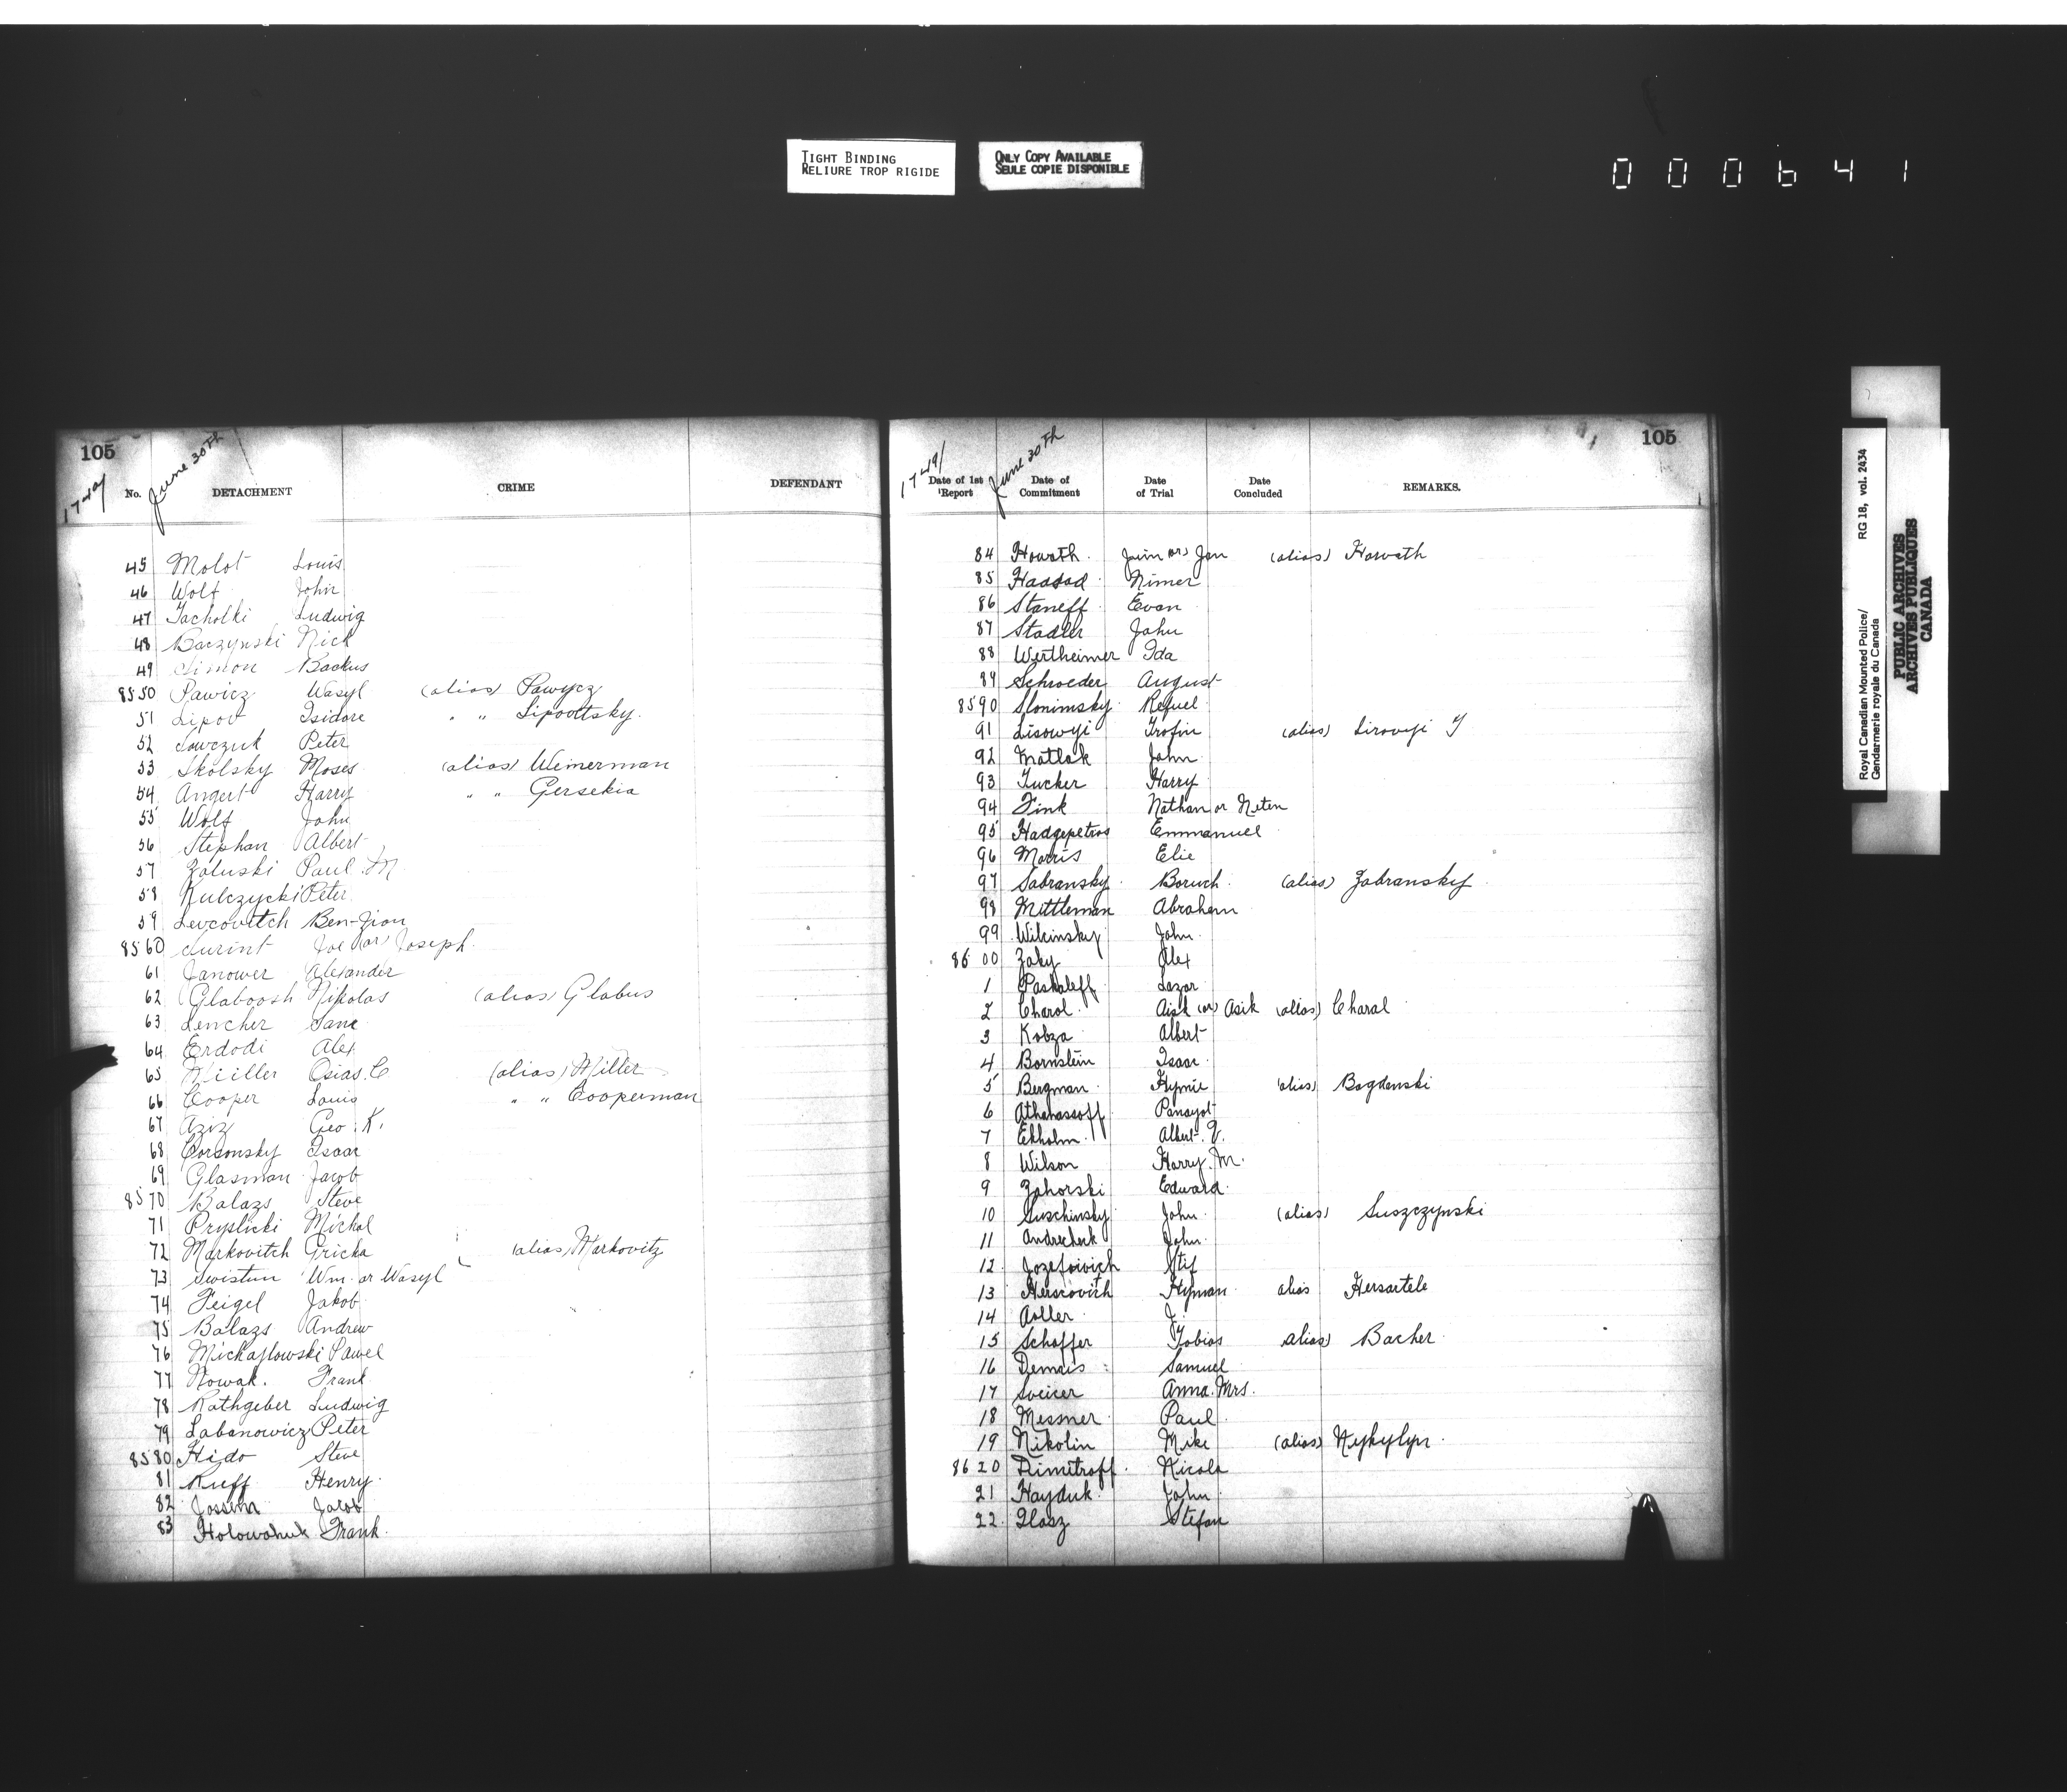 TIGHT BINDING
RELIURE TROP RIGIDE
ONLY COPY AVAILABLE
SEULE COPIE DISPONIBLE
000641
105
1749/ June 30th
No. DETACHMENT CRIME DEFENDANT
45 Molot Louis
46 Wolf John
47 Tacholki Ludwig
48 Baczynski Nick
49 Simon Backus
8550 Pawicz Wasyl (alias) Pawycz
51 Lipov Isidore " " Lipovitsky.
52 Sawczuk Peter
53 Skolsky Moses (alias) Weinerman
54 Angert Harry " " Gersekia
55 Wolf John
56 Stephan Albert
57 Zaluski Paul M
58 Kulczycki Peter
59 Levcovitch Ben-Zion
8560 Surint Joe (or) Joseph
61 Janower Alexander
62 Glaboosh Nikolas (alias) Globus
63 Lencher Sane
64 Erdodi Alex
65 Miiller Osias. C (alias) Miller
66 Cooper Louis " " Cooperman
67 Aziz Geo. K.
68 Corsonsky Isaac
69 Glasman Jacob
8570 Balazs Steve
71 Pryslicki Michal
72 Markovitch Gricka (alias) Markovitz
73 Swistun Wm. or Wasyl
74 Feigel Jakob
75 Balazs Andrew
76 Mickajlowski Pawel
77 Nowak. Frank
78 Rathgeber Ludwig
79 Labanowicz Peter
8580 Hido Steve
81 Rueff Henry.
82 Jossem Jacob
83 Holowahuk Frank.
105
1749/ June 30th
Date of 1st Report Date of Commitment Date of Trial Date Concluded REMARKS.
84 Howath Juim (or) Jan (alias) Horvath
85 Haddad Nimer
86 Staneff Evan
87 Stadler John
88 Wertheimer Ida
89 Schroeder August
8590 Slonimsky Refuel
91 Lisowyi Trofin (alias) Lirovyi T
92 Matlak John
93 Tucker Harry
94 Fink Nathan or Neten
95 Hadgepetros Emmanuel
96 Morris Elie
97 Sabransky Boruch. (alias) Zabransky
98 Mittleman Abraham
99 Wilcinsky John
8600 Zaky Alex
1 Paskaleff Lazar
2 Charol Aisk (or) Asik (alias) Charal
3 Kobza Albert
4 Bornstein Isaac
5 Bergman Hymie (alias) Bogdenski
6 Athanassoff Panayot
7 Ekholm Albert. V.
8 Wilson Harry. M.
9 Zahorski Edward
10 Suschinsky John (alias) Suszczynski
11 Andrecheck John
12 Jozefoivich Stif
13 Herscovich Hyman alias Hersartele
14 Adler J.
15 Schaffer Tobias alias) Bacher
16 Demais Samuel
17 Sveicer Anna. Mrs.
18 Messner Paul
19 Nikolin Mike (alias) Nykylyn
8620 Dimitroff Nicola
21 Hayduk John
22. Ilasz Stefan
Royal Canadian Mounted Police/ RG 18, vol. 2434
Gendarmerie royale du Canada
PUBLIC ARCHIVES
ARCHIVES PUBLIQUES
CANADA